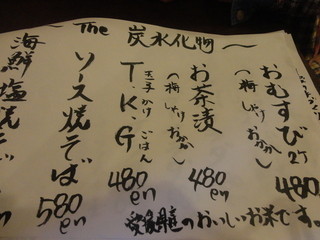 〜 The 炭水化物 〜
おむすび 2ケ
(梅 しゃけ おかか)
480
お茶漬
(梅 しゃけ おかか)
480en
T・K・G
玉子かけごはん
480en
ソース焼そば
580en
海鮮塩焼そば
のおいしいお米です。